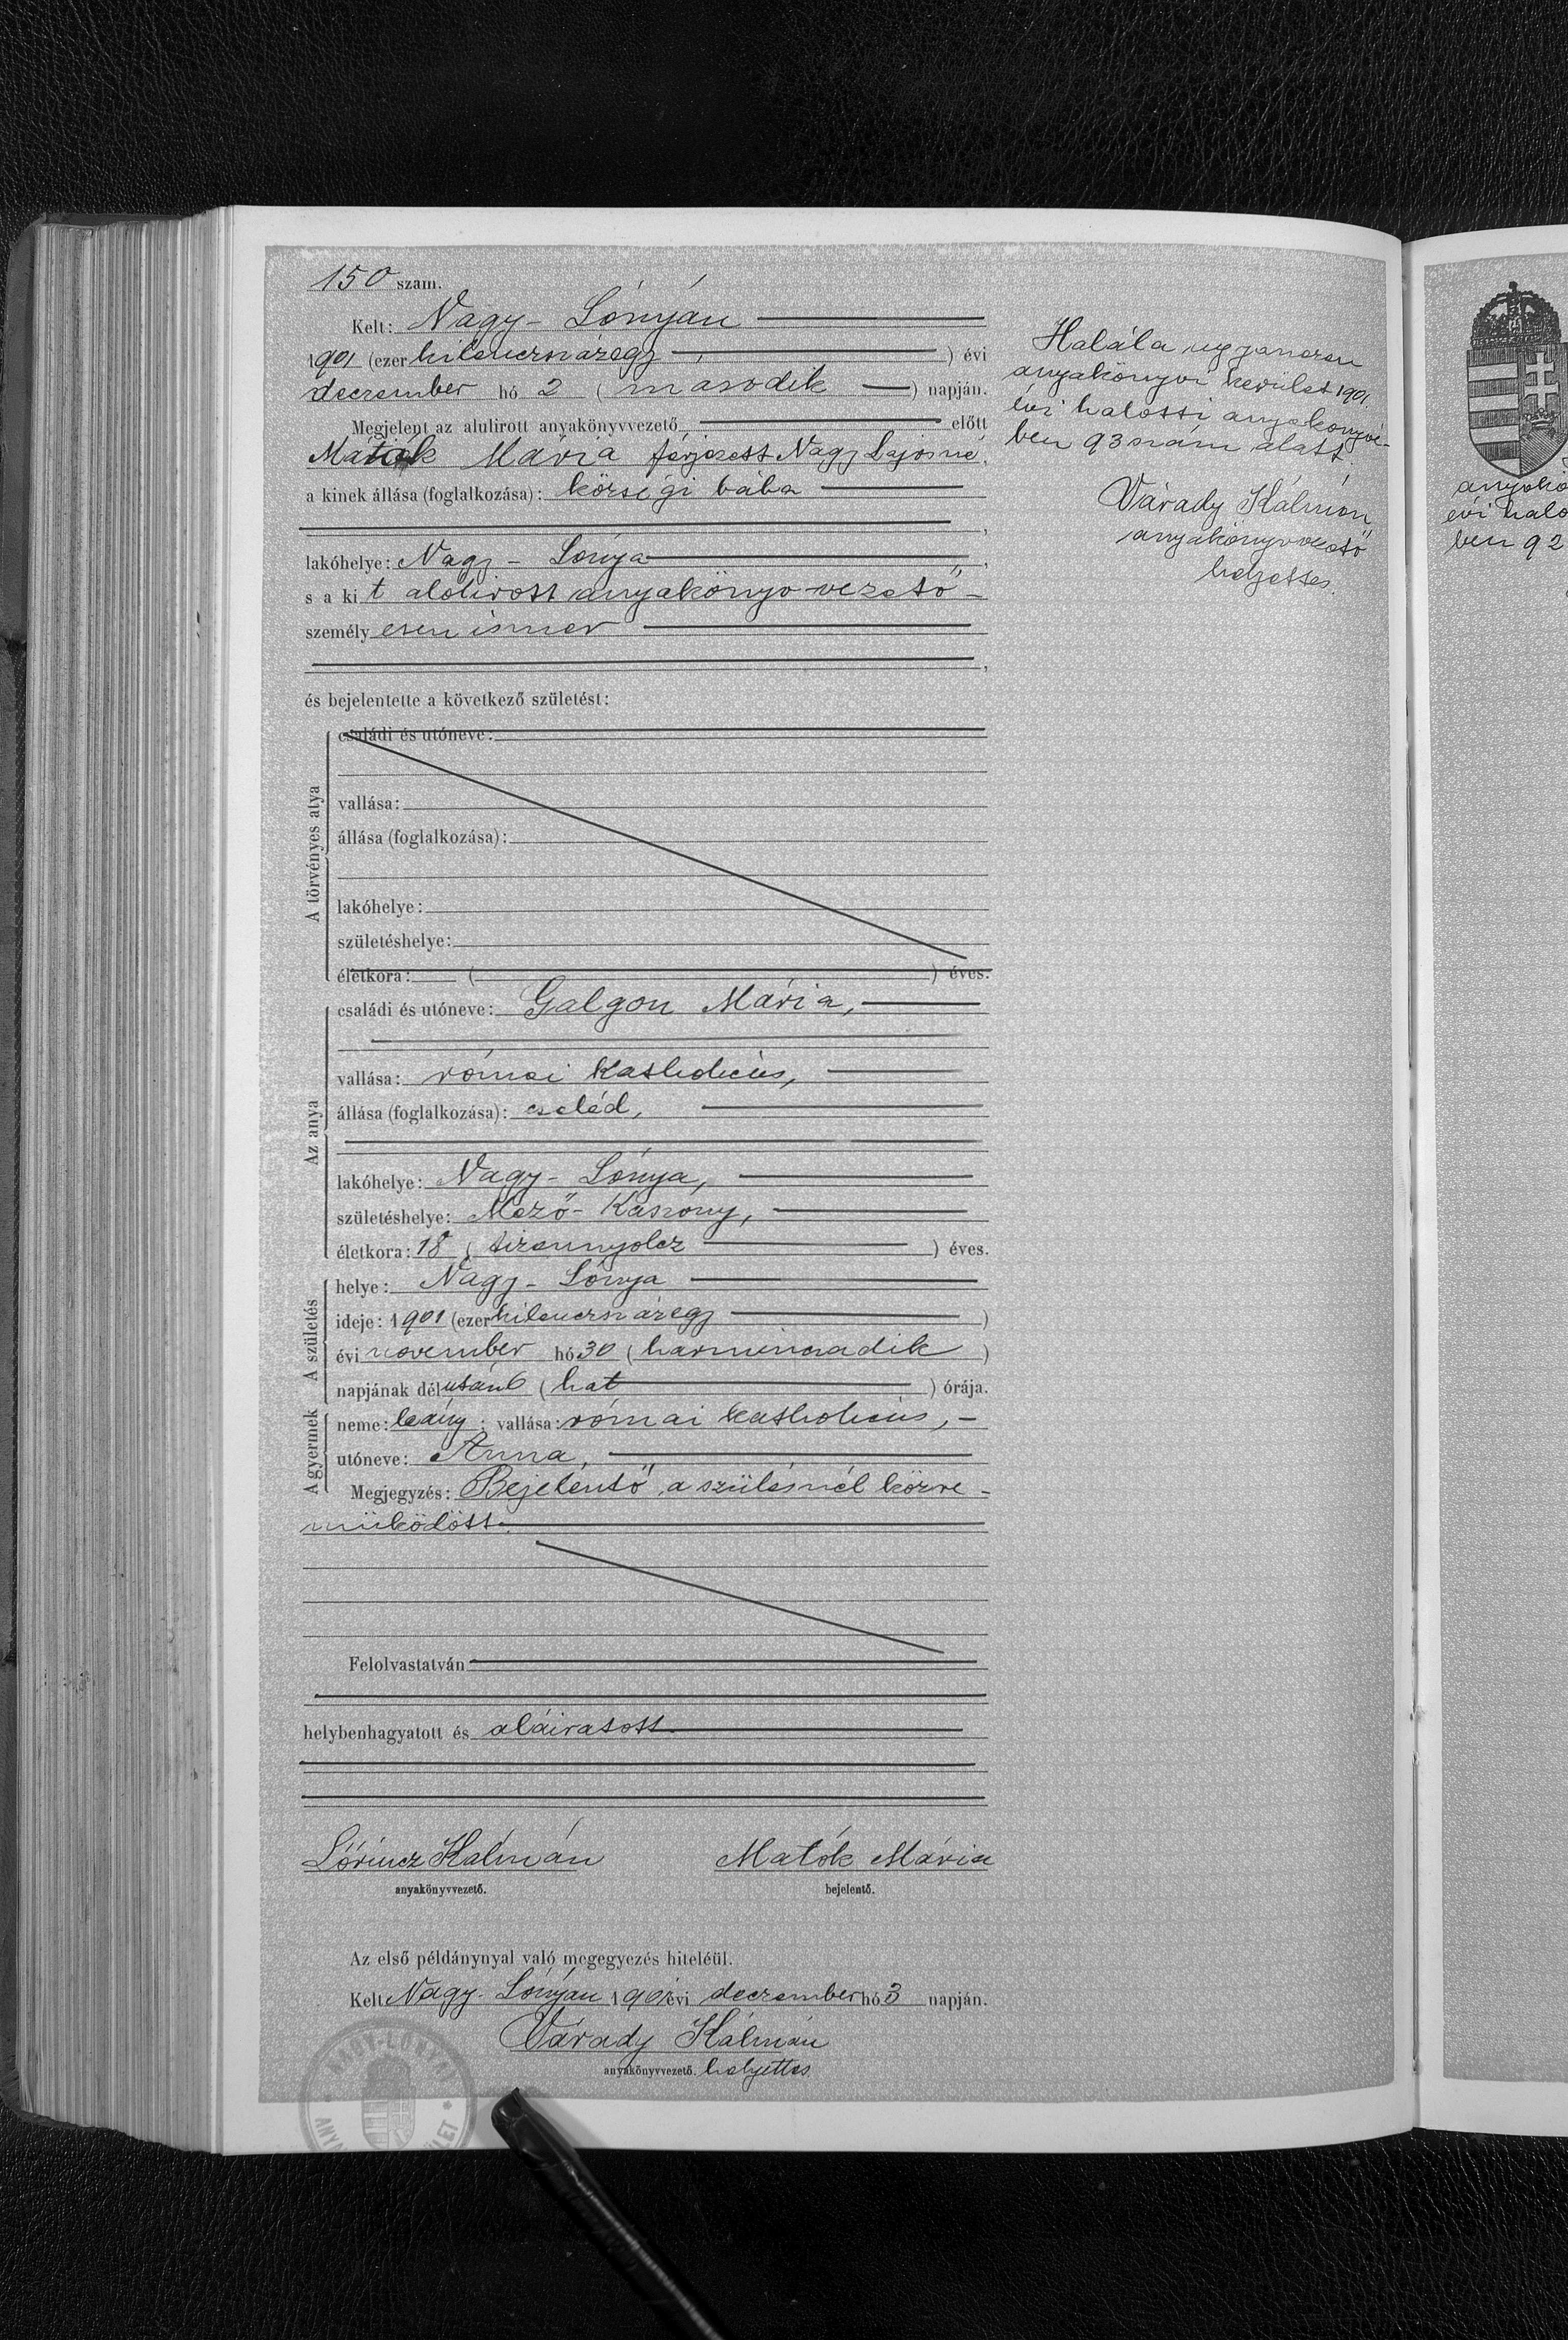 150 szám.
Kelt: Nagy-Lónyán
1901 (ezer kilenczszázegy) évi
deczember hó 2 (második) napján.
Megjelent az alulirott anyakönyvvezető előtt
Maták Mária férjezett Nagy Lajosné,
a kinek állása (foglalkozása): községi bába
,
lakóhelye: Nagy-Lónya,
s a kit alólirott anyakönyvvezető
személyesen ismer
,
és bejelentette a következő születést:
A törvényes atya
családi és utóneve:
vallása:
állása (foglalkozása):
lakóhelye:
születéshelye:
életkora: ( ) éves.
Az anya
családi és utóneve: Galgon Mária,
vallása: római katholicus,
állása (foglalkozása): cseléd,
lakóhelye: Nagy-Lónya,
születéshelye: Mező-Kászony,
életkora: 18 (tizennyolcz) éves.
A születés
helye: Nagy-Lónya
ideje: 1901 (ezer kilenczszázegy)
évi november hó 30 (harminczadik)
napjának délután 6 (hat) órája.
A gyermek
neme: leány; vallása: római katholicus,
utóneve: Anna,
Megjegyzés: Bejelentő, a szülésnél közre-
müködött.
Felolvastatván
helybenhagyatott és aláiratott
Lőrincz Kálmán
anyakönyvvezető.
Matók Mária
bejelentő.
Az első példánynyal való megegyezés hiteléül.
Kelt Nagy-Lónyán 1901 évi deczember hó 3 napján.
Várady Kálmán
anyakönyvvezető. helyettes
NAGY-LÓNYAI
Halála ugyanezen
anyakönyvi kerület 1901.
évi halotti anyakönyvé-
ben 93 szám alatt.
Várady Kálmán
anyakönyvvezető
helyettes
évi halo
ben 92